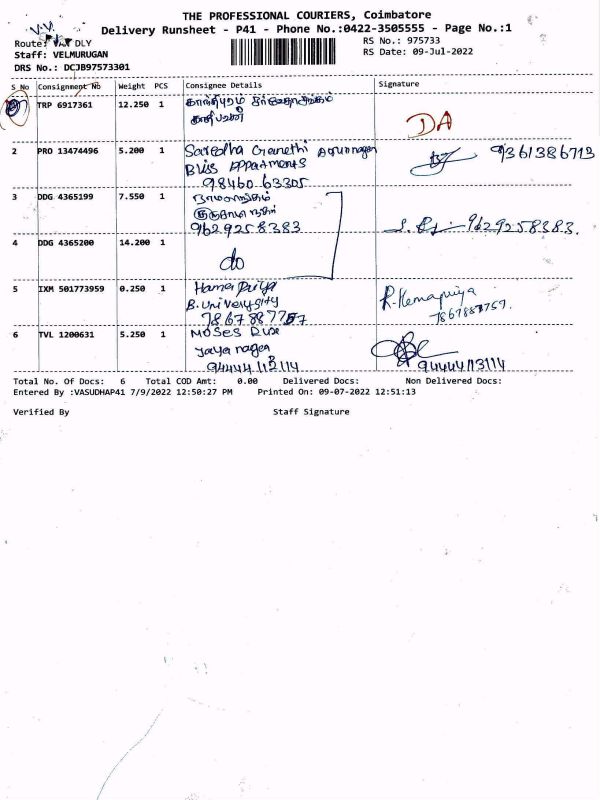 THE PROFESSIONAL COURIERS, Coimbatore
Delivery Runsheet - P41 - Phone No.:0422-3505555 - Page No.:1
Route: DLY
RS No.: 975733
Staff: VELMURUGAN
RS Date: 09-Jul-2022
DRS No.: DCJB97573301
S No Consignment No Weight PCS Consignee Details Signature
TRP 6917361 12.250 1
DA
2 PRO 13474496 5.200 1
Bliss Appartments
98460 63305
9361386713
3 DDG 4365199 7.550 1
9629258383
9629258383.
4 DDG 4365200 14.200 1
do
5 IXM 501773959 0.250 1 Hema Priya
B. University
7867887757
R. Hemapriya
7867887757.
6 TVL 1200631 5.250 1 Moses
Jaya nagar
94444 113114
94444113114
Total No. Of Docs: 6 Total COD Amt: 0.00 Delivered Docs: Non Delivered Docs:
Entered By :VASUDHAP41 7/9/2022 12:50:27 PM Printed On: 09-07-2022 12:51:13
Verified By Staff Signature